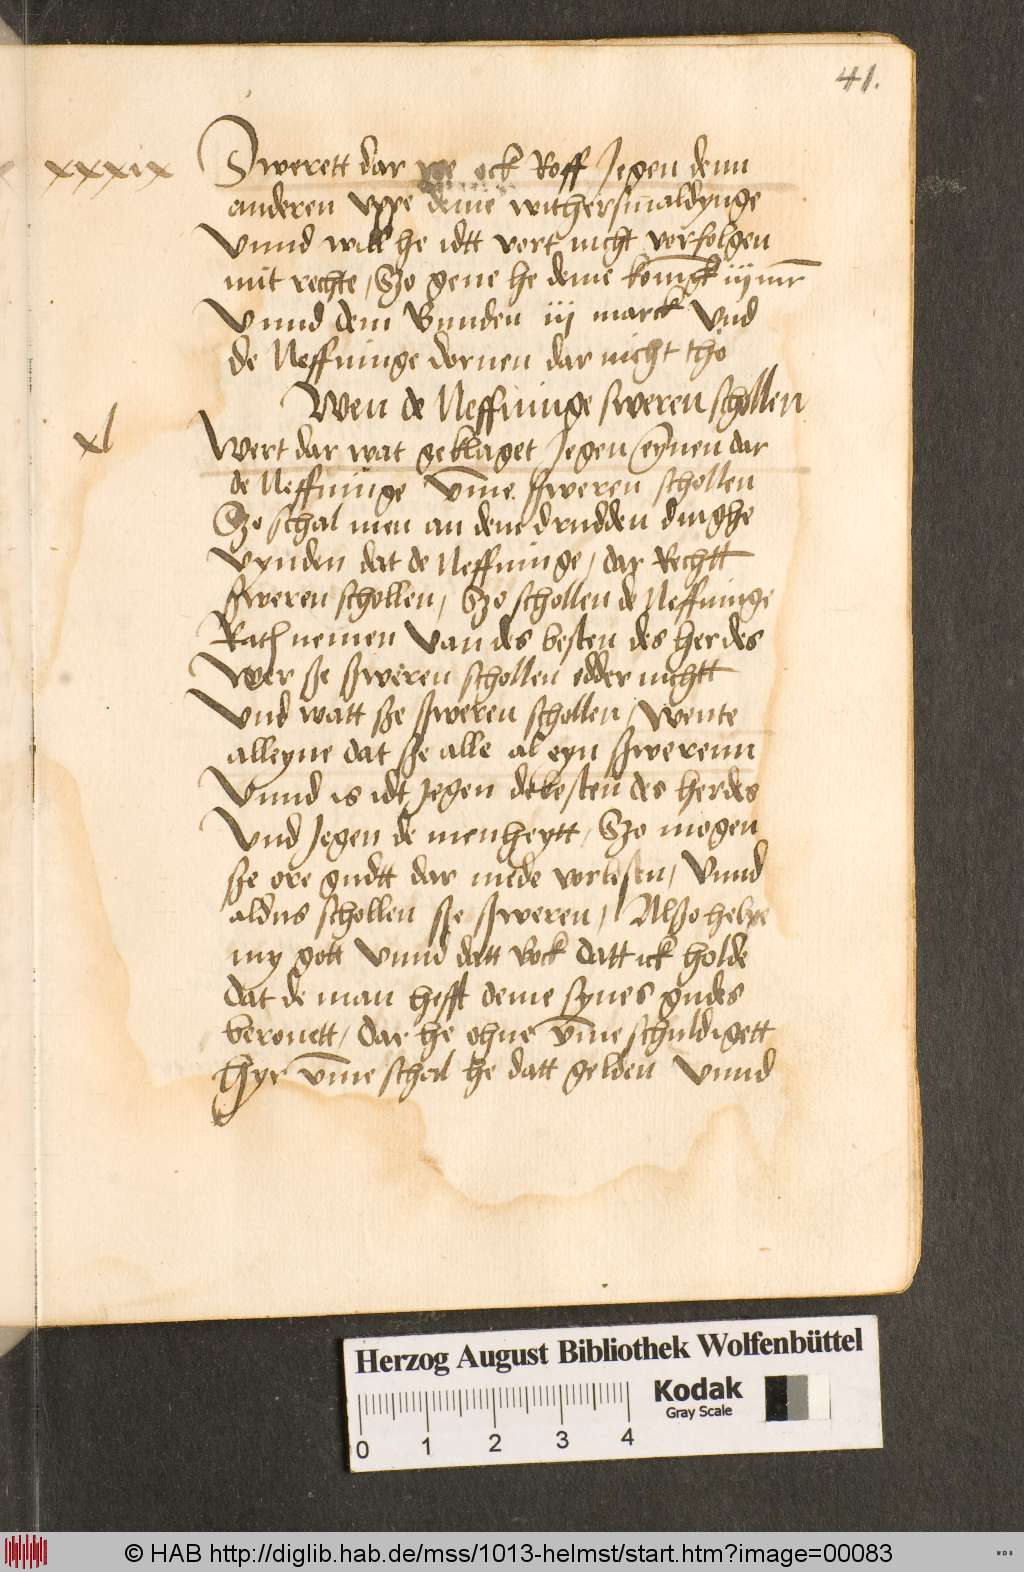 41.
xxxix
Swerett dar we ock Roff Jegen denn
anderen vppe deme withersmaldynge
Vnnd will he idt vort nicht vorfolgen
mit rechte, Szo geue he deme konigk iij mr
Vnnd dem Bunden iij marck Vnd
de Neffninge doruen dar nicht tho
Wen de Neffninge sweren schollen
xl
Wert dar wat geklaget Jegen eynen dar
de Neffninge vme sweren schollen
Szo schal men an dem drudden dinghe
vynden dat de Neffninge, dar Rechtt
sweren schollen, Szo schollen de Neffninge
Rath nemen van des besten des herdes
Wer sze sweren schollen edder nichtt
Vnd watt sze sweren schollen, Wente
alleyne dat sze alle al eyn swerenn
Vnnd is idt Jegen de besten des herdes
Vnd Jegen de menheytt, Szo mogen
sze ore gudtt dar mede vorlesen, Vnnd
aldus schollen sze sweren, Alszo helpe
my gott Vnnd datt bock datt ick holde
dat de man hefft deme synes gudes
berouett, dar he ohne vme schuldigett
Hyr vme schal he datt gelden Vnnd
Herzog August Bibliothek Wolfenbüttel
Kodak
Gray Scale
0 1 2 3 4
© HAB http://diglib.hab.de/mss/1013-helmst/start.htm?image=00083